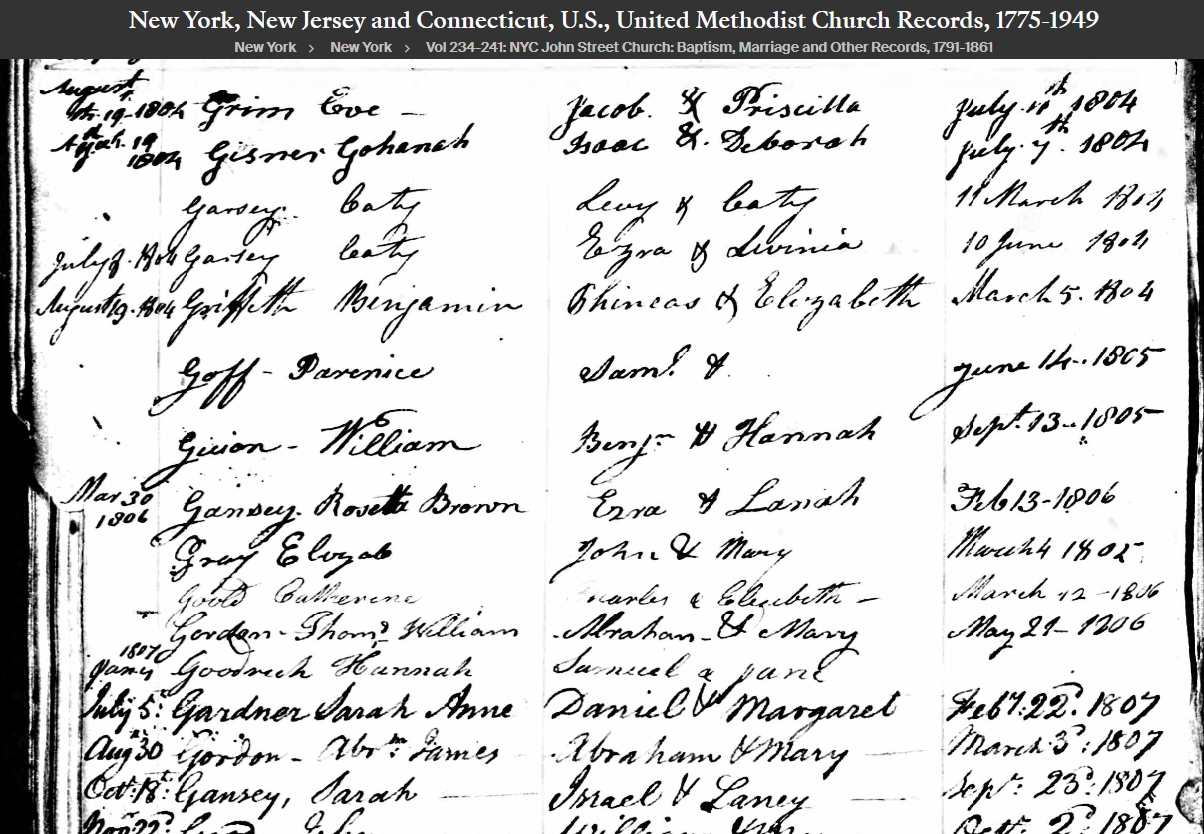 New York, New Jersey and Connecticut, U.S., United Methodist Church Records, 1775-1949
New York > New York > Vol 234-241: NYC John Street Church: Baptism, Marriage and Other Records, 1791-1861
August
19-1804 Grim Eve — Jacob. & Priscilla July 1804
19 1804 Gisner Gohanah Isaac &. Deborah July 7th. 1804
Garsey Caty Levy & Caty 11 March 1804
July 8. 1804 Garsey Caty Ezra & Livinia 10 June 1804
August 19. 1804 Griffith Benjamin Phineas & Elizabeth March 5. 1804
Goff - Parenice Saml. & June 14.. 1805
Guion - William Benjn & Hannah Sept. 13.. 1805
Mar 30 1806 Gansey. Rosetta Brown Ezra & Lanah Feb 13-1806
Gray Elizab John & Mary March 4 1805
Goold Catherine Charles & Elizebeth — March 12 - 1806
Gordon - Thoms William Abraham - & Mary May 21 - 1806
1807
Goodrich Hannah Samuel & Jane
July 5: Gardner Sarah Anne Daniel & Margaret Feby: 22d. 1807
Aug 30 Gordon - Abrm: James Abraham & Mary — March 3d: 1807
Octr. 18: Gansey, Sarah — Israel & Laney — Sepr: 23d: 1807
Novr 22d: John William & 1807